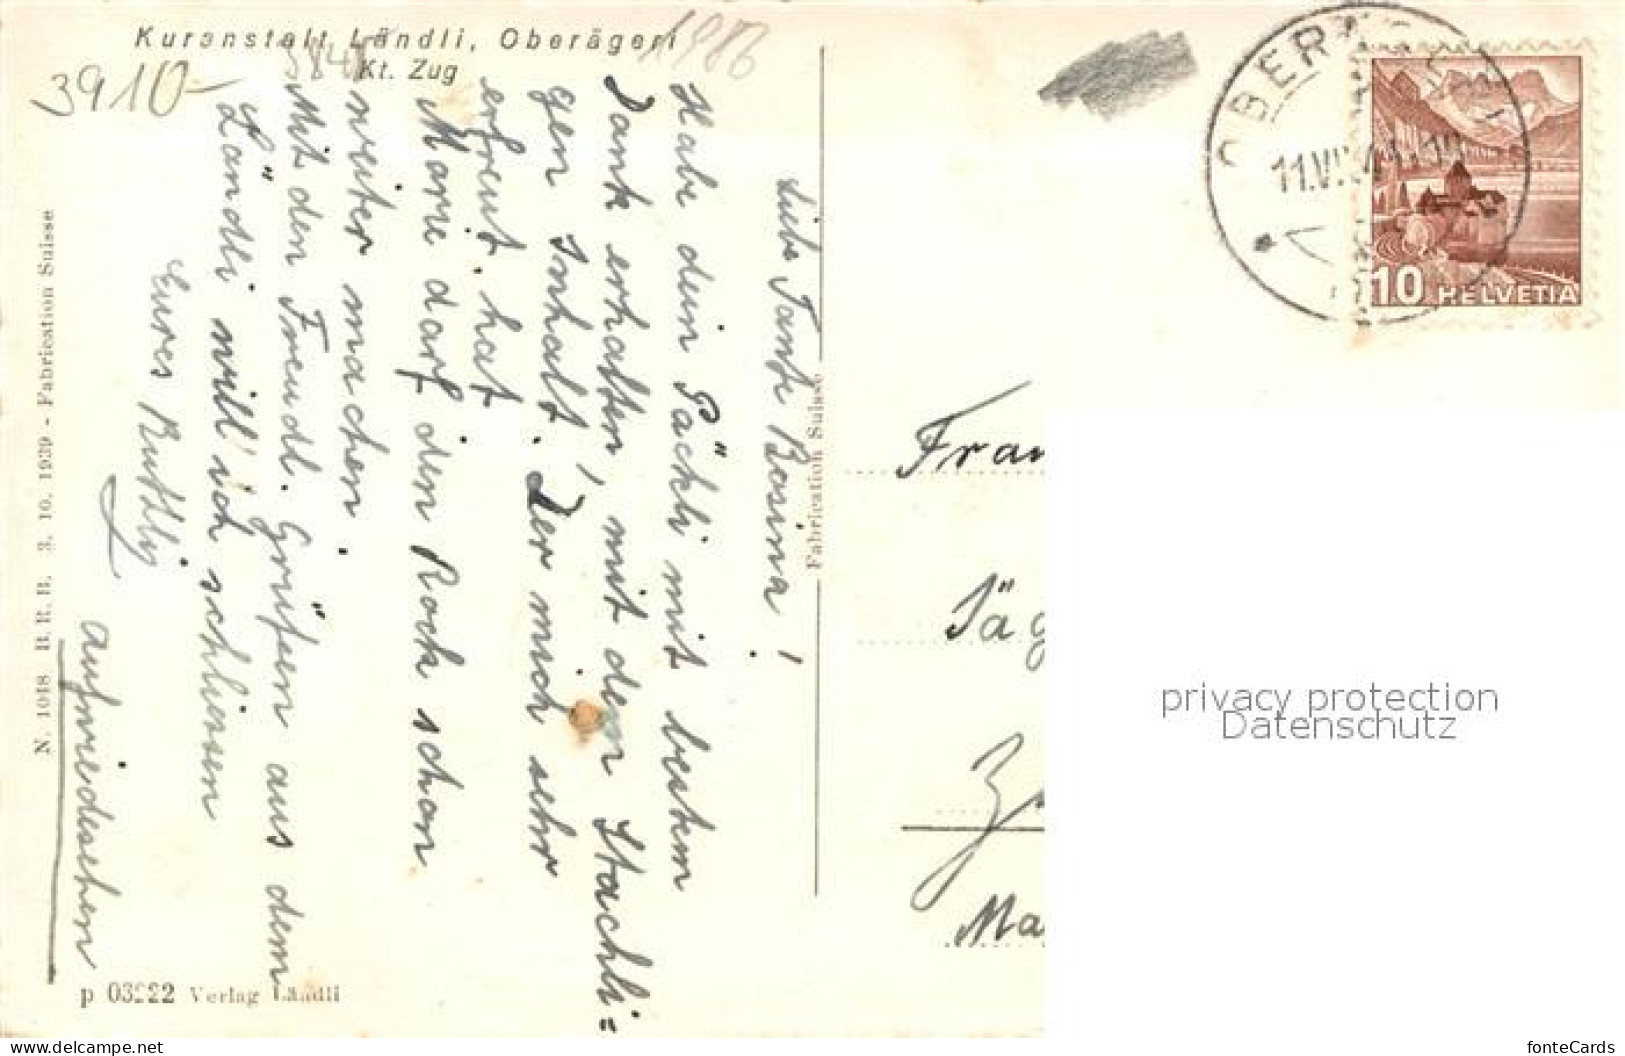 Kuranstalt Ländli, Oberägeri
Kt. Zug
3910-
1986
Liebe Tante Rosina!
Habe dein Päckli mit bestem
Dank erhalten, mit dem Stachli=
gen Inhalt. Der mich sehr
erfreut hat.
Marie darf den Rock schon
weiter machen.
Mit den Freundl. Grüßen aus dem
Ländli will ich schliessen
Eures Ruthly
aufwiedesehen
N. 1048 B. R. B. 3. 10. 1939 - Fabrication Suisse
Fabrication Suisse
p 03222 Verlag Ländli
11.VI
10 HELVETIA
Frau
Jäg
Ma
privacy protection
Datenschutz
www.delcampe.net
fonteCards